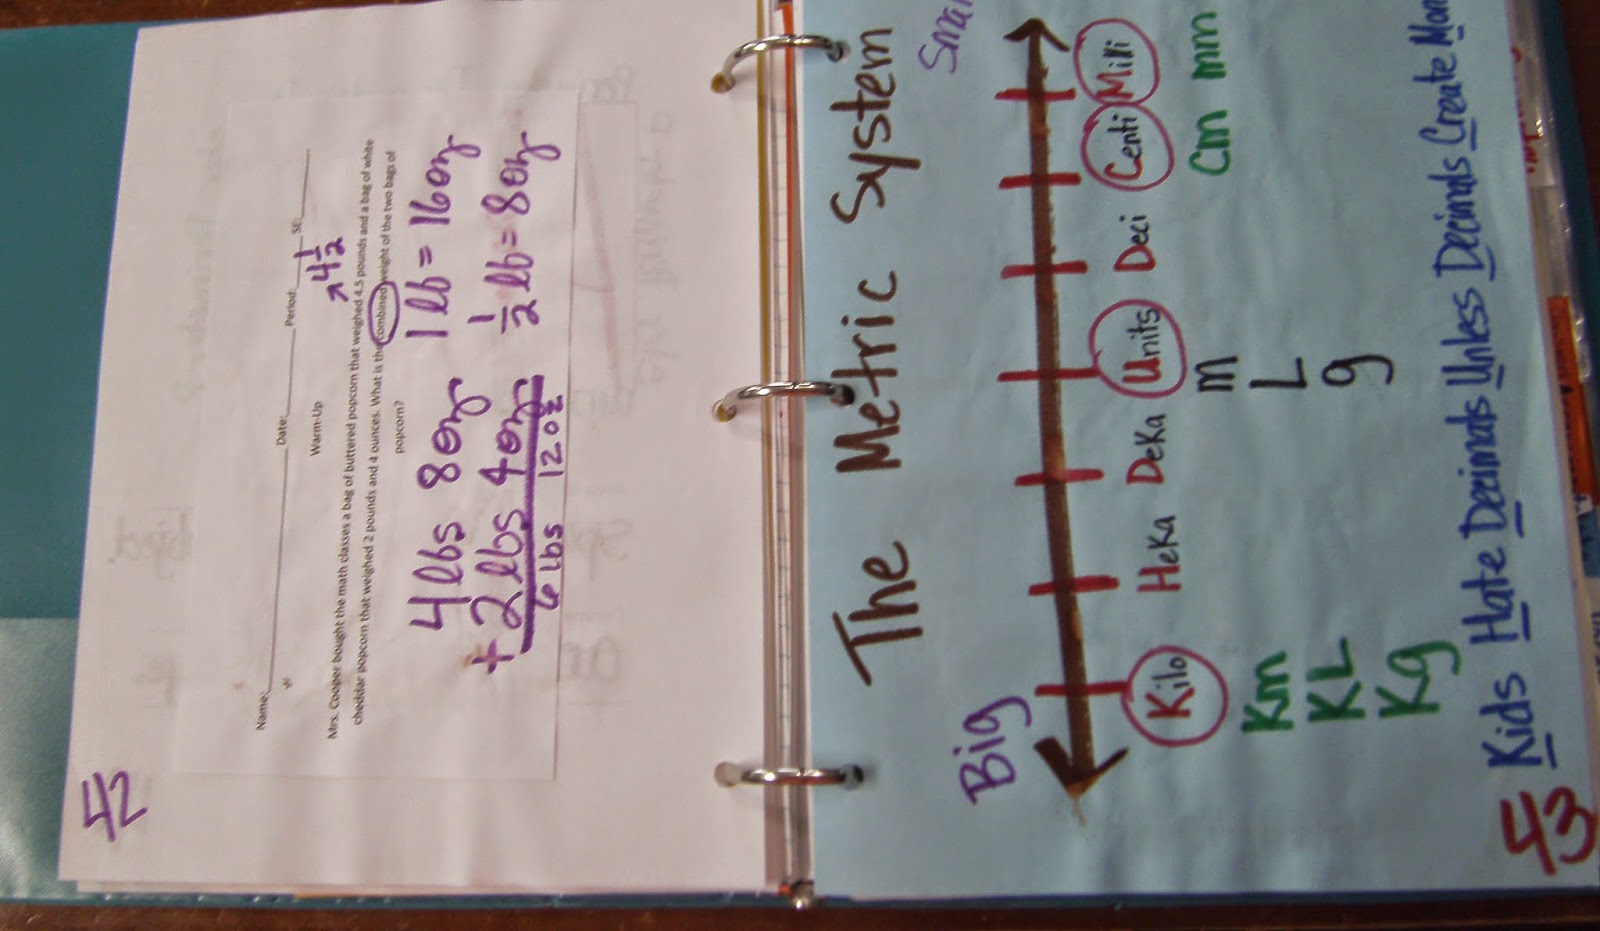 42
Name: Date: Period: SE:
Warm-Up
↗ 4 1/2
Mrs. Cooper bought the math classes a bag of buttered popcorn that weighed 4.5 pounds and a bag of white
cheddar popcorn that weighed 2 pounds and 4 ounces. What is the combined weight of the two bags of
popcorn?
4 lbs 8 oz
+ 2 lbs 4 oz
6 lbs 12 oz
1 lb = 16 oz
1/2 lb = 8 oz
The Metric System
Big
Kilo HeKa DeKa Units Deci Centi Milli
Km m Cm mm
KL L
Kg g
Kids Hate Decimals Unless Decimals Create
43